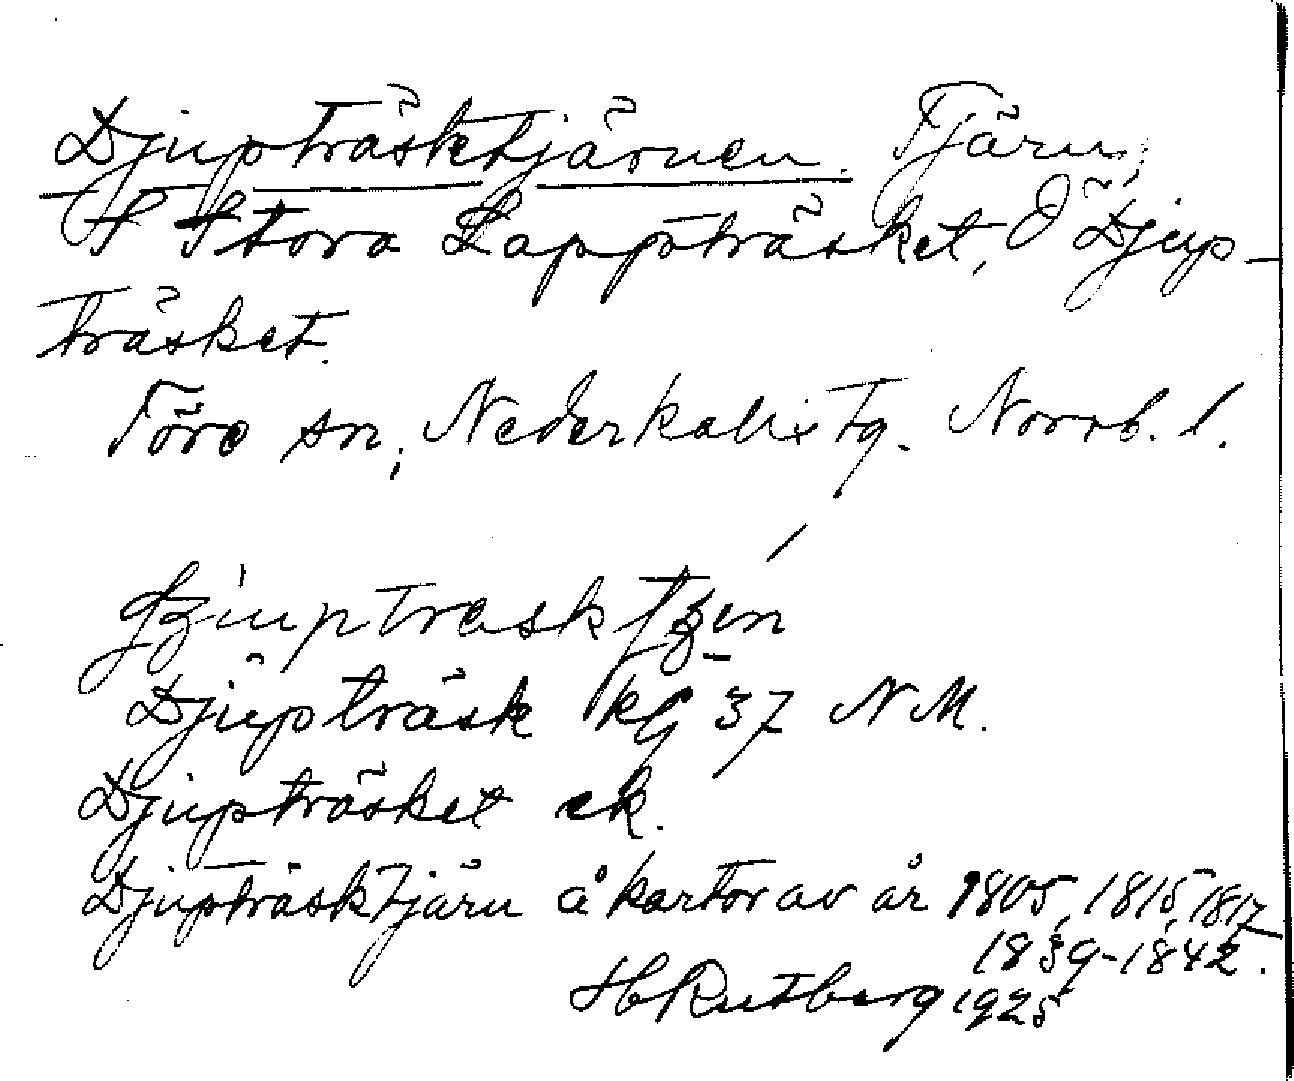 Djupträsktjärnen. Tjärn,
S Stora Lappträsket, Ö Djup-
träsket.
Töre sn, Nederkalix tg. Norrb. l.
Djupträsk kG 37 N M.
Djupträsket ek.
Djupträsktjärn å kartor av år 1805, 1815, 1817
1839-1842.
H Rutberg 1925